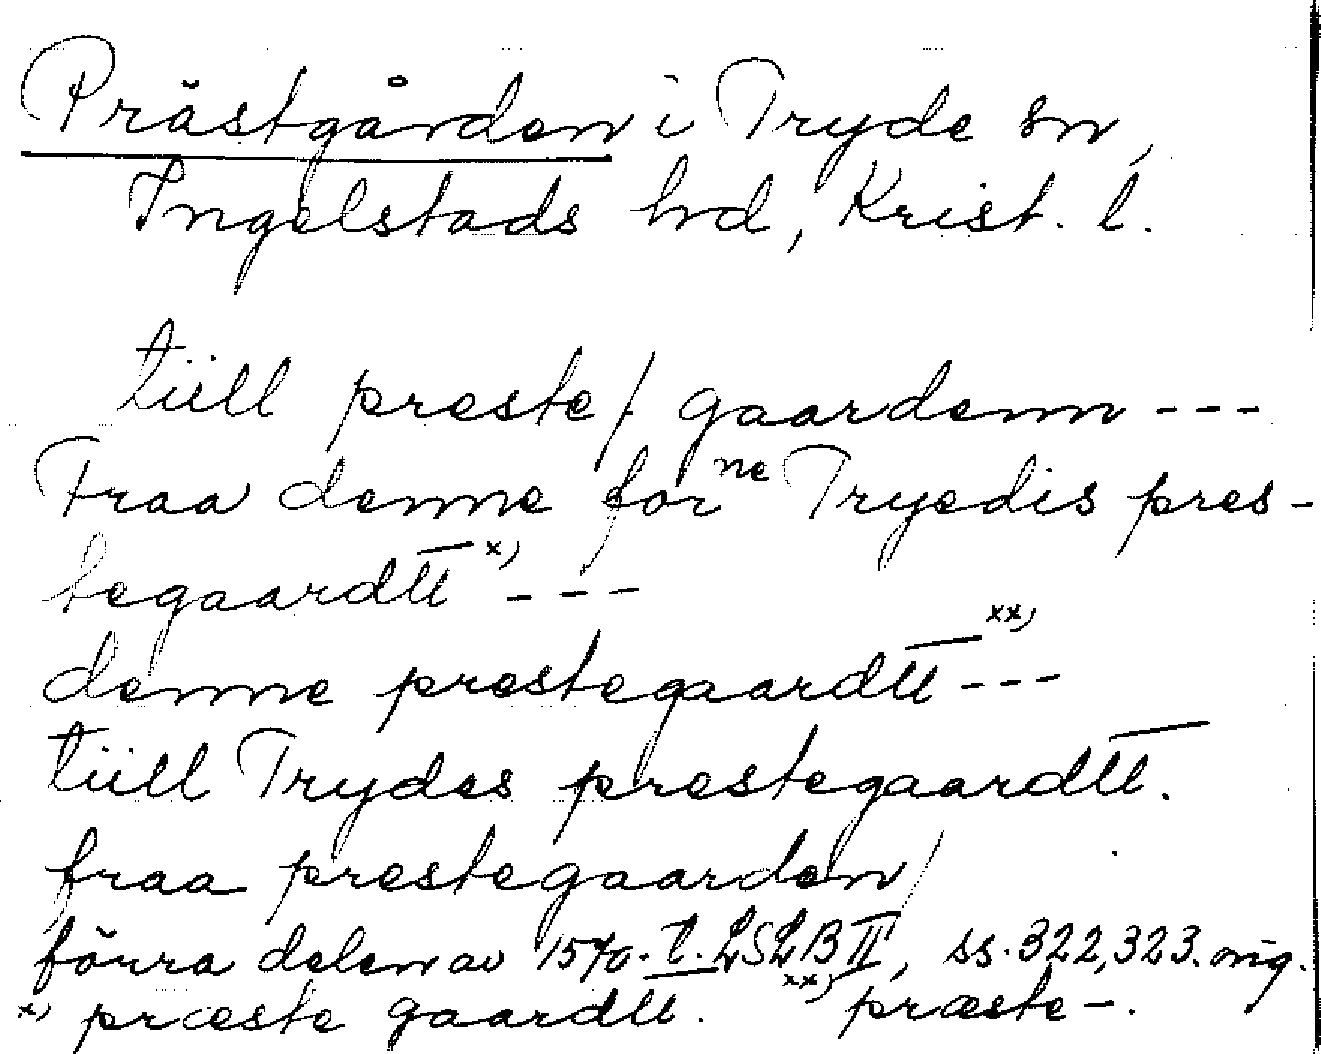 Prästgården i Tryde sn,
Ingelstads hd, Krist. l.
tiill preste/. gaardenn ---
Fraa denne for ne Tryedis pres-
tegaardtt x) ---
denne prestegaardtt xx) ---
tiill Trydes prestegaardtt.
fraa prestegaarden/
förra delen av 1570. t. LSLB II, ss. 322, 323. orig.
x) præste gaardtt. xx) præste-.